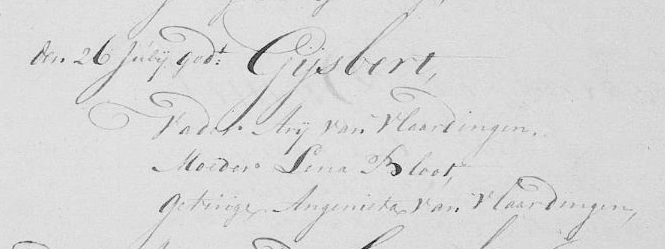 den 26 Julij, ged.t: Gijsbert,
Vader Arij van Vlaardingen.
Moeder Lena Bloot,
Getuige, Angenieta van Vlaardingen,